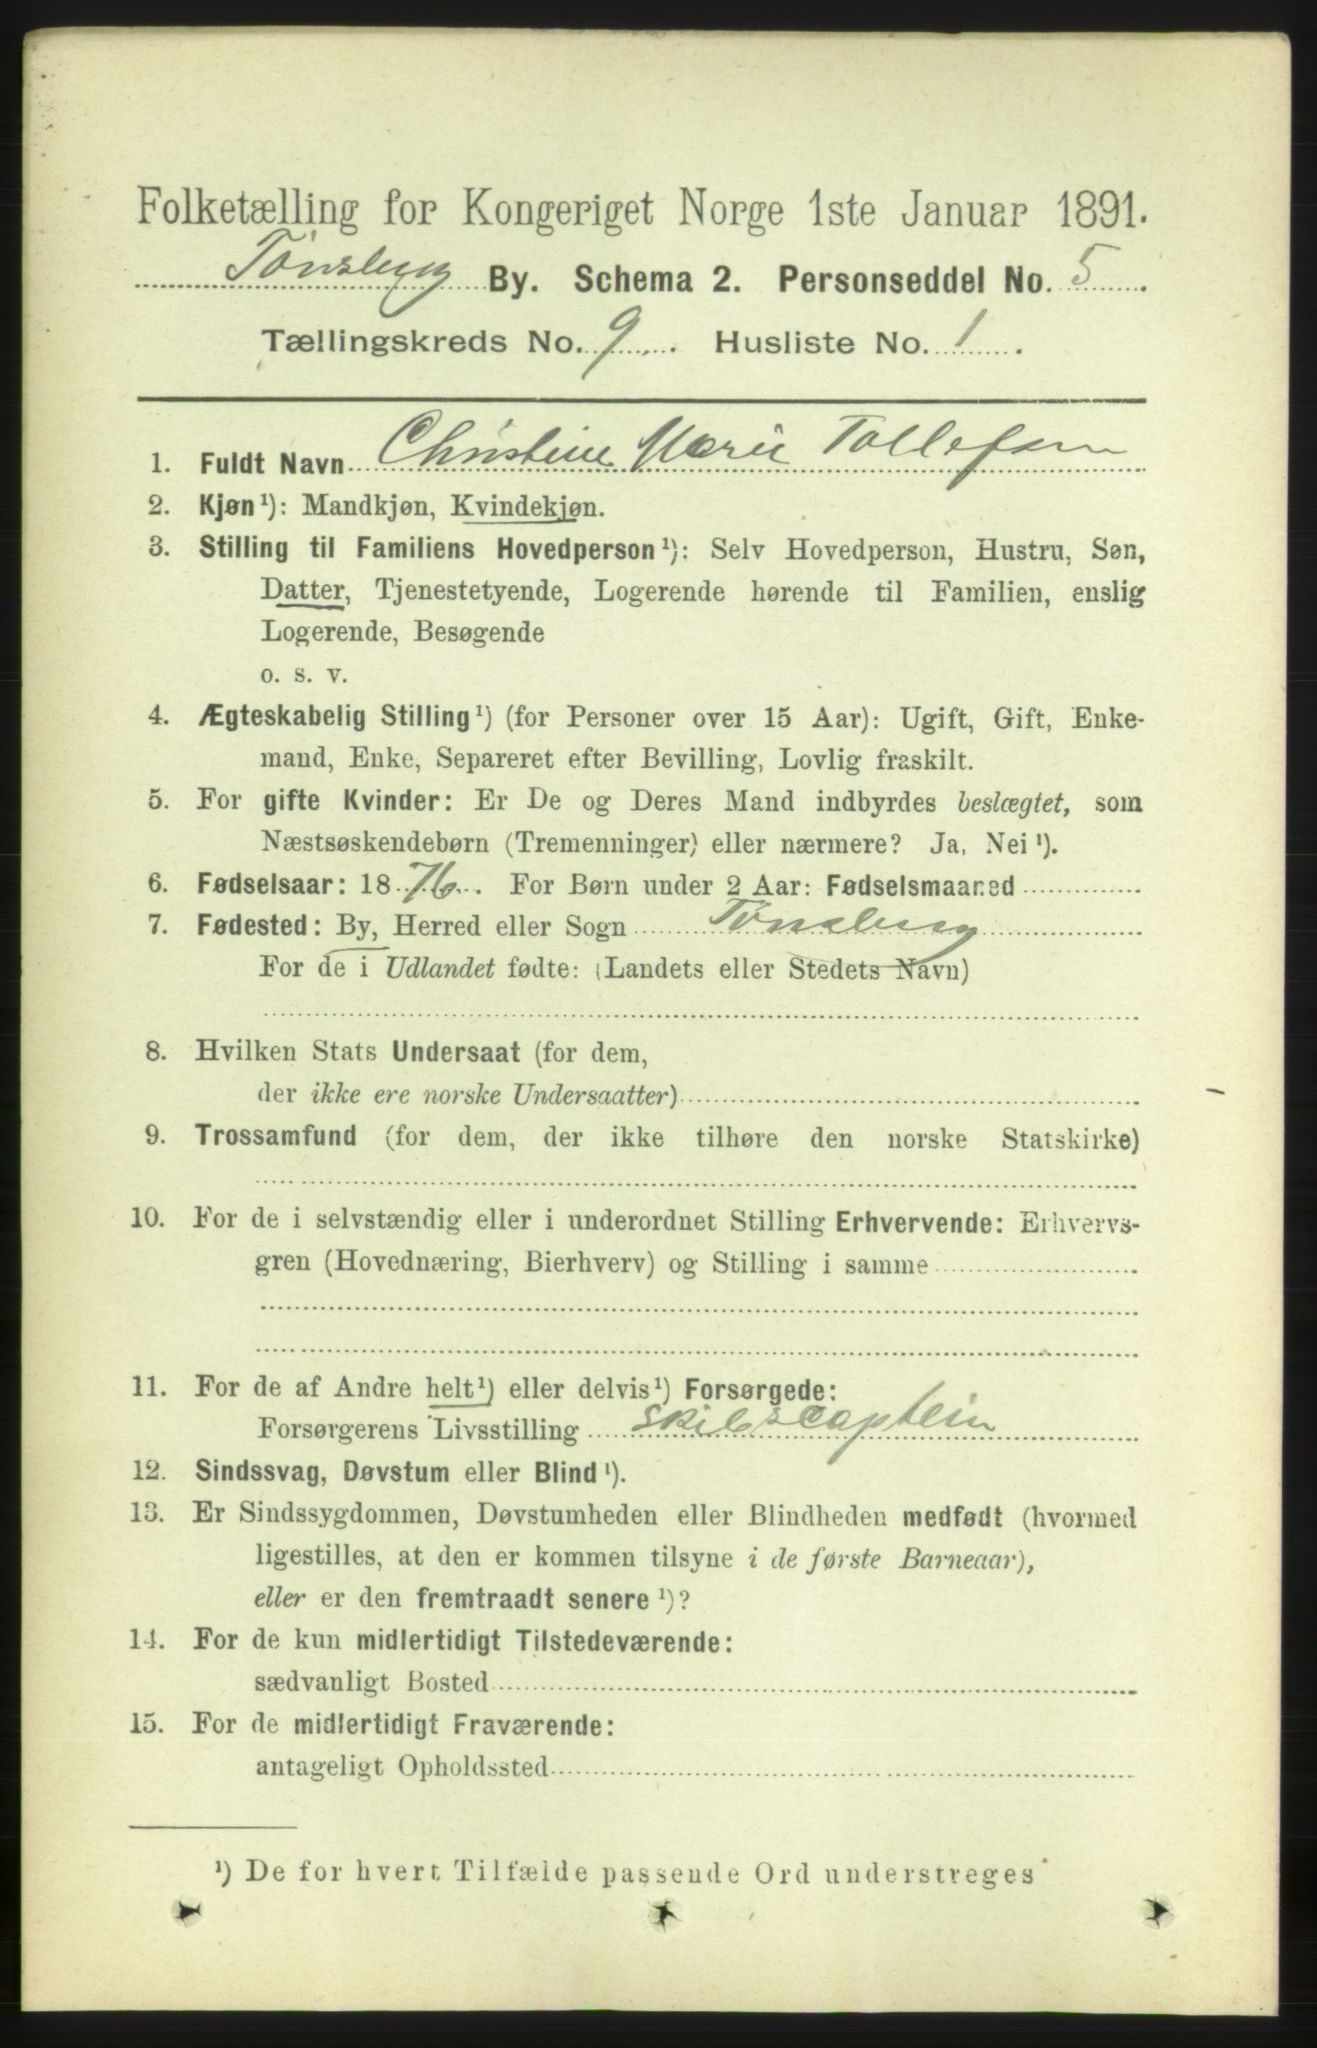 Folketælling for Kongeriget Norge 1ste Januar 1891.
Tønsberg By. Schema 2. Personseddel No. 5.
Tællingskreds No. 9. Husliste No. 1.
1. Fuldt Navn Christine Marie Tollefsen
2. Kjøn¹): Mandkjøn, Kvindekjøn.
3. Stilling til Familiens Hovedperson¹): Selv Hovedperson, Hustru, Søn,
Datter, Tjenestetyende, Logerende hørende til Familien, enslig
Logerende, Besøgende
o. s. v.
4. Ægteskabelig Stilling¹) (for Personer over 15 Aar): Ugift, Gift, Enke-
mand, Enke, Separeret efter Bevilling, Lovlig fraskilt.
5. For gifte Kvinder: Er De og Deres Mand indbyrdes beslægtet, som
Næstsøskendebørn (Tremenninger) eller nærmere? Ja, Nei¹).
6. Fødselsaar: 1876. For Børn under 2 Aar: Fødselsmaaned
7. Fødested: By, Herred eller Sogn Tønsberg
For de i Udlandet fødte: (Landets eller Stedets Navn)
8. Hvilken Stats Undersaat (for dem,
der ikke ere norske Undersaatter)
9. Trossamfund (for dem, der ikke tilhøre den norske Statskirke)
10. For de i selvstændig eller i underordnet Stilling Erhvervende: Erhvervs-
gren (Hovednæring, Bierhverv) og Stilling i samme
11. For de af Andre helt¹) eller delvis¹) Forsørgede:
Forsørgerens Livsstilling Skibscaptein
12. Sindssvag, Døvstum eller Blind¹).
13. Er Sindssygdommen, Døvstumheden eller Blindheden medfødt (hvormed
ligestilles, at den er kommen tilsyne i de første Barneaar),
eller er den fremtraadt senere¹)?
14. For de kun midlertidigt Tilstedeværende:
sædvanligt Bosted
15. For de midlertidigt Fraværende:
antageligt Opholdssted
¹) De for hvert Tilfælde passende Ord understreges